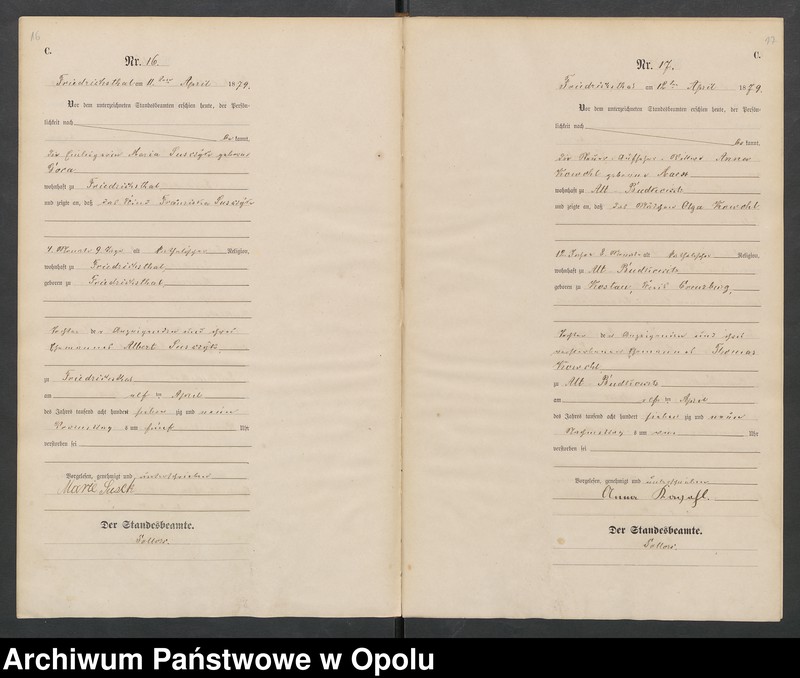 16
C.
Nr. 16.
Friedrichsthal am 11ten April 1879.
Vor dem unterzeichneten Standesbeamten erschien heute, der Persön-
lichkeit nach
be kannt,
die Maria geborene
wohnhaft zu Friedrichsthal
und zeigte an, daß das Kind Franziska
4 Monate 9 Tage alt katholischer Religion,
wohnhaft zu Friedrichsthal,
geboren zu Friedrichsthal
Tochter der Anzeigenden und ihres
Ehemannes Albert
zu Friedrichsthal
am elf ten April
des Jahres tausend acht hundert sieben zig und neun
Vormittag s um fünf Uhr
verstorben sei
Vorgelesen, genehmigt und unterschrieben
Marie
Der Standesbeamte.
C.
Nr. 17.
Friedrichsthal am 12ten April 1879.
Vor dem unterzeichneten Standesbeamten erschien heute, der Persön-
lichkeit nach
be kannt,
die Anna
geborene
wohnhaft zu Alt Budkowitz
und zeigte an, daß das Mädchen Olga
12 Jahre 8 Monate alt katholischer Religion,
wohnhaft zu Alt Budkowitz
geboren zu Kostau, Kreis Creuzburg,
Tochter der Anzeigenden und ihres
verstorbenen Ehemannes Thomas
zu Alt Budkowitz
am elf ten April
des Jahres tausend acht hundert sieben zig und neun
Nachmittag s um Uhr
verstorben sei
Vorgelesen, genehmigt und unterschrieben
Anna
Der Standesbeamte.
Archiwum Państwowe w Opolu